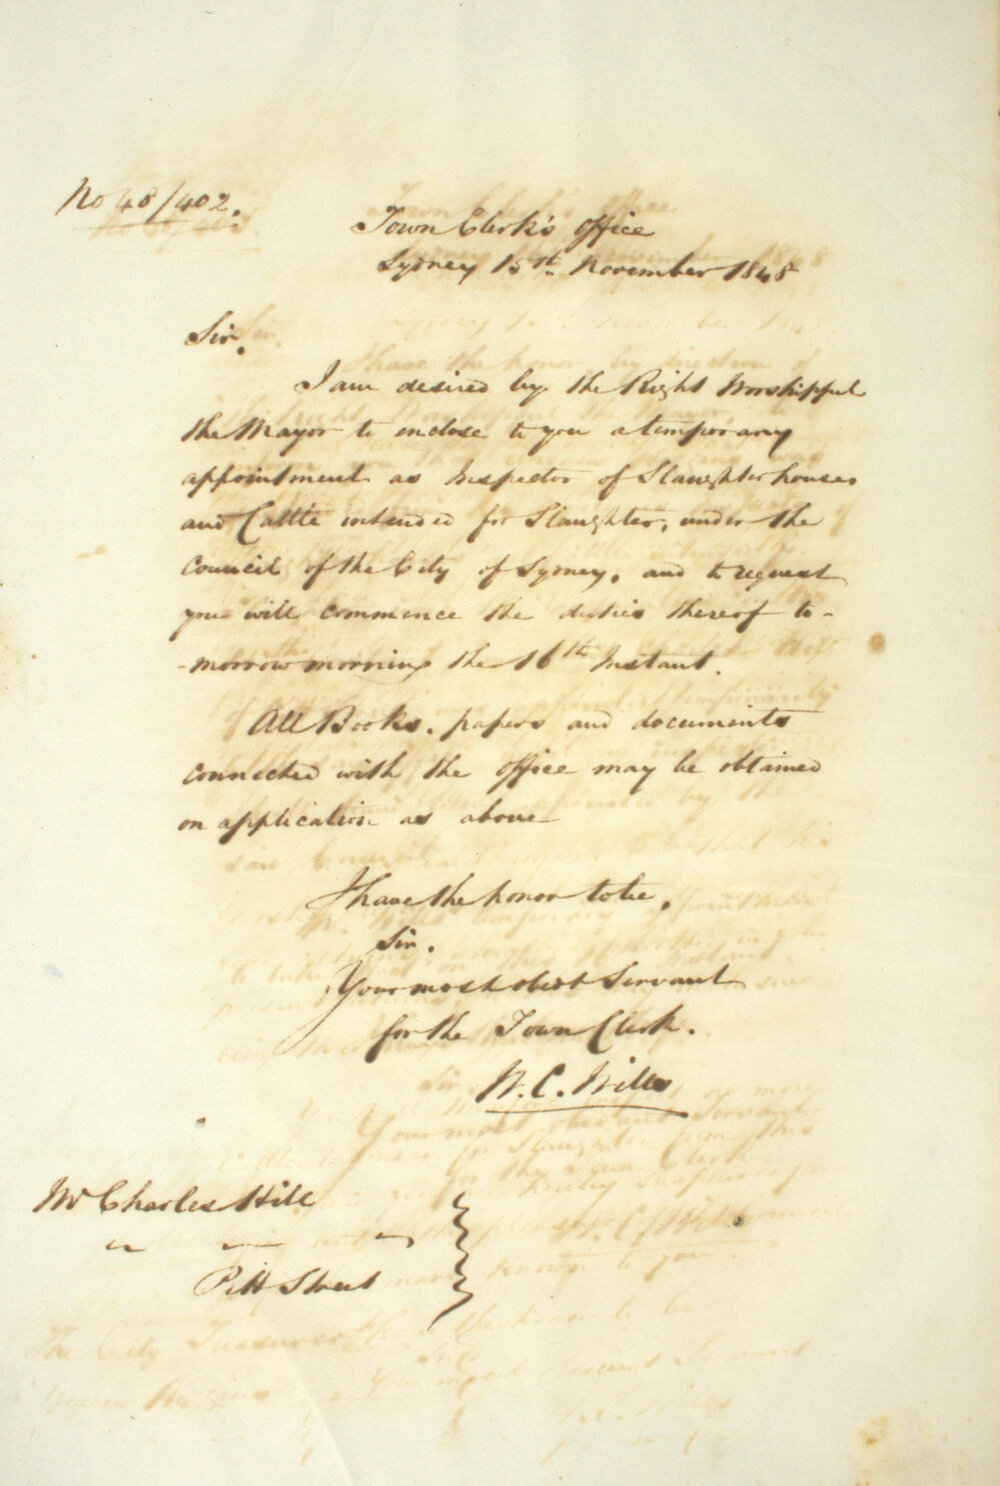 No 48/402.
Town Clerk's Office
Sydney 15th November 1848
Sir,
I am desired by the Right Worshipful
the Mayor to enclose to you a temporary
appointment as Inspector of Slaughterhouses
and Cattle intended for Slaughter, under the
Council of the City of Sydney, and to request
you will commence the duties thereof to-
-morrow morning the 16th Instant.
All Books, papers and documents
connected with the office may be obtained
on application as above
I have the honor to be,
Sir.
Your most obedt Servant
for the Town Clerk.
W. C. Wills
Mr Charles Hill
" " "
Pitt Street